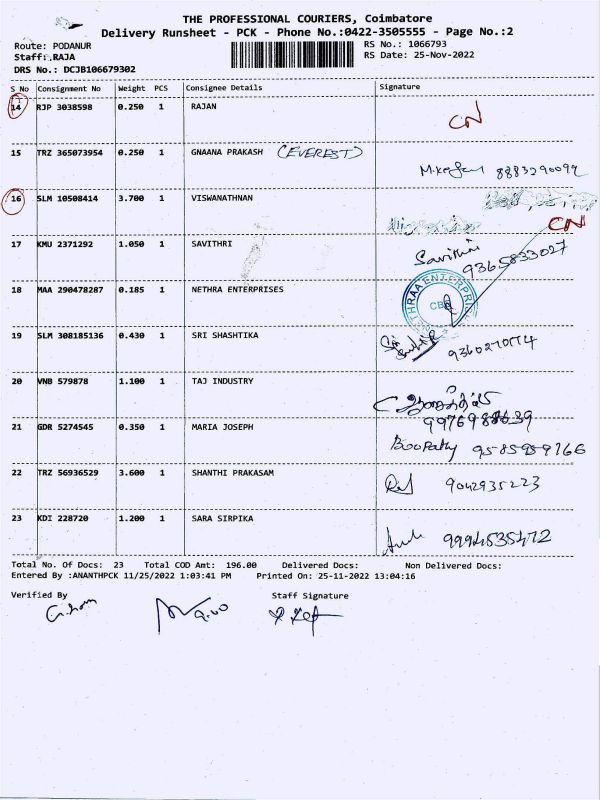 THE PROFESSIONAL COURIERS, Coimbatore
Delivery Runsheet - PCK - Phone No.:0422-3505555 - Page No.:2
Route: PODANUR RS No.: 1066793
Staff: RAJA RS Date: 25-Nov-2022
DRS No.: DCJB106679302
S No Consignment No Weight PCS Consignee Details Signature
14 RJP 3038598 0.250 1 RAJAN
CN
15 TRZ 365073954 0.250 1 GNAANA PRAKASH (EVEREST)
8883290099
16 SLM 10508414 3.700 1 VISWANATHNAN
CN
17 KMU 2371292 1.050 1 SAVITHRI
Savithri
9365833027
18 MAA 290478287 0.185 1 NETHRA ENTERPRISES
THRAA ENTERPRIS
CB
19 SLM 308185136 0.430 1 SRI SHASHTIKA
20 VNB 579878 1.100 1 TAJ INDUSTRY
21 GDR 5274545 0.350 1 MARIA JOSEPH
Boopathy 9585989766
22 TRZ 56936529 3.600 1 SHANTHI PRAKASAM
9042935223
23 KDI 228720 1.200 1 SARA SIRPIKA
9994535472
Total No. Of Docs: 23 Total COD Amt: 196.00 Delivered Docs: Non Delivered Docs:
Entered By :ANANTHPCK 11/25/2022 1:03:41 PM Printed On: 25-11-2022 13:04:16
Verified By Staff Signature
9.00